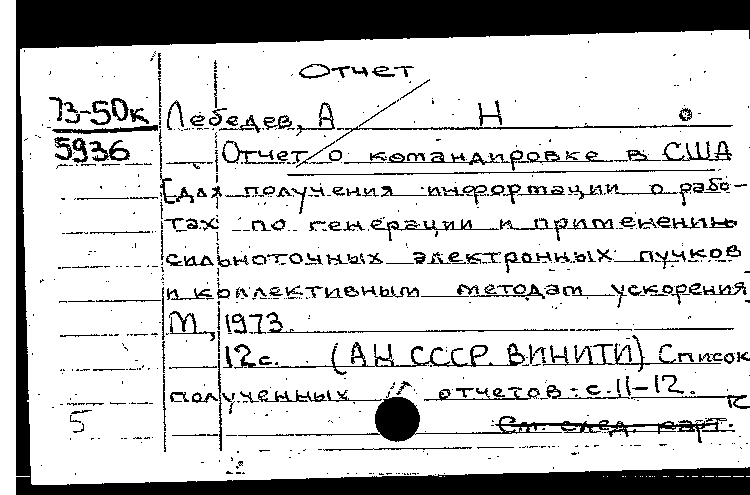 Отчет
73-50к Лебедев, А Н
5936 Отчет о командировке в США
[для получения информации о рабо-
тах по генерации и применению
сильноточных электронных пучков
и коллективным методам ускорения
М, 1973.
12с. (АН СССР. ВИНИТИ) Список
полученных отчетов: с. 11-12.
5 См. след. карт.